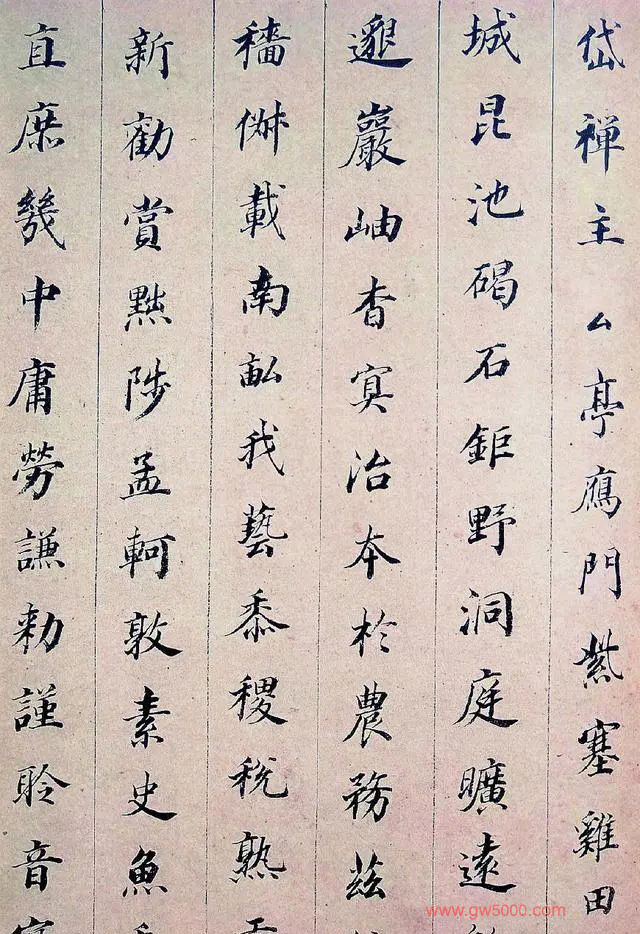 岱禪主云亭鴈門紫塞雞田
城昆池碣石鉅野洞庭曠遠
邈巖岫杳冥治本於農務茲
穡俶載南畝我藝黍稷稅熟
新勸賞黜陟孟軻敦素史魚
直庶幾中庸勞謙勅謹聆音
www.gw5000.com